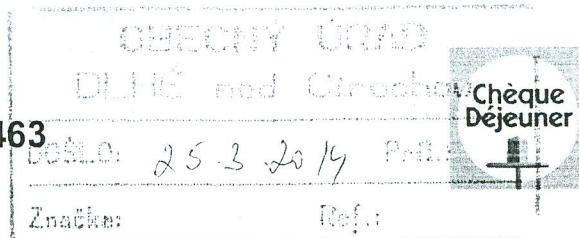 OBECNÝ ÚRAD
DLHÉ nad Cirochou
Chèque
Déjeuner
463
DOŠLO: 25.3.2014 Príl.:
Značka: Ref.: